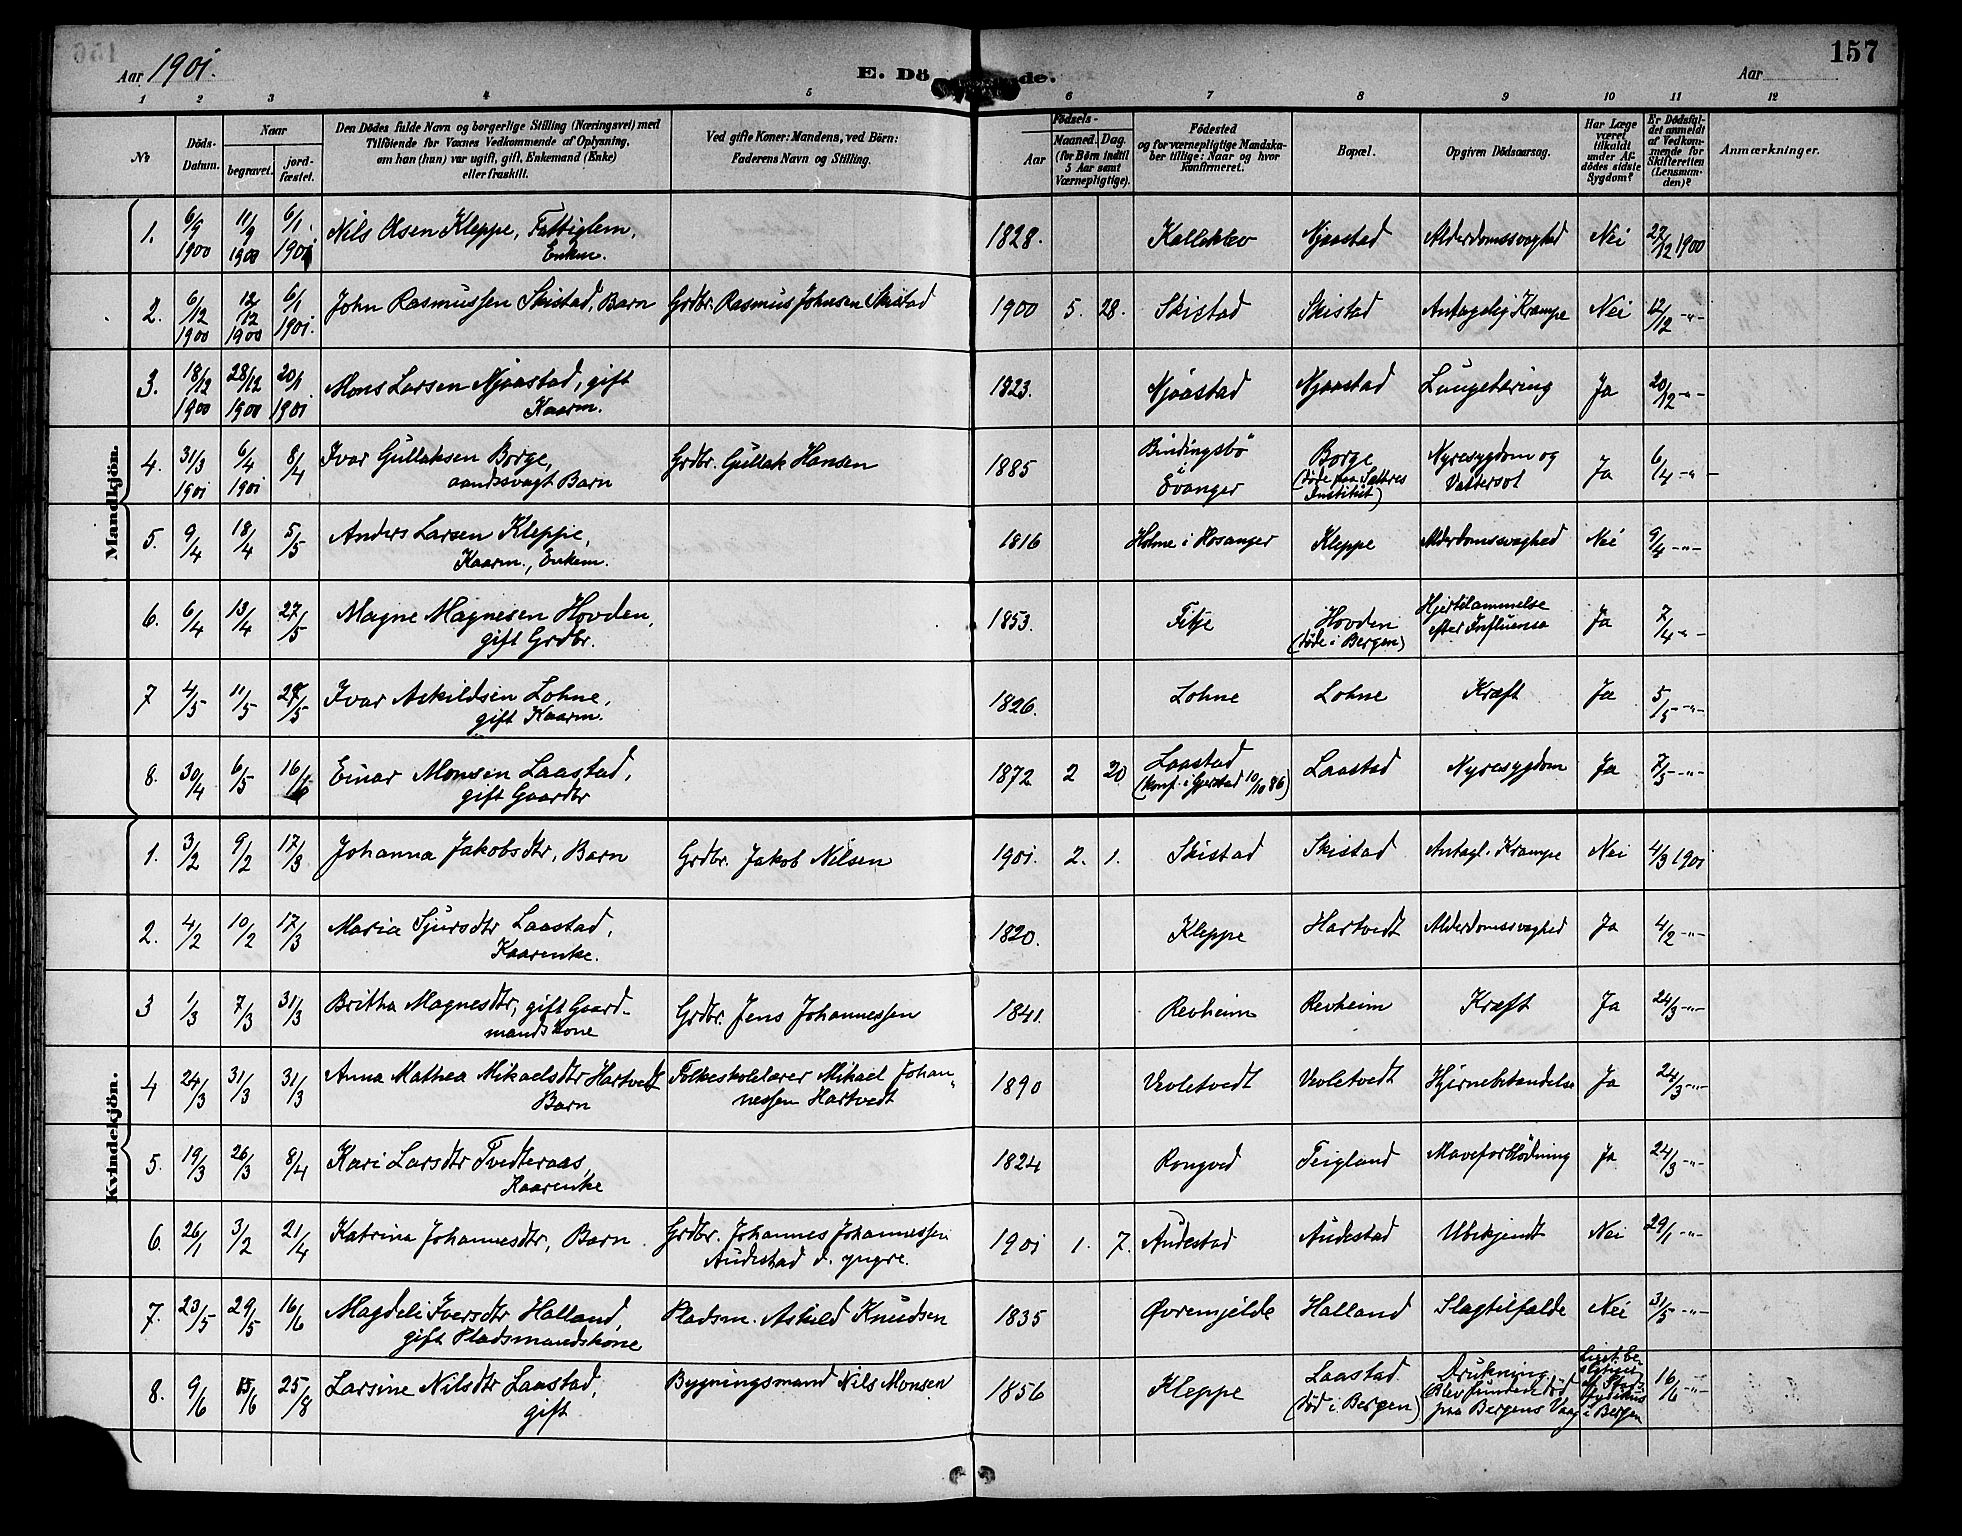 Aar 1901.
E. Dö de.
Aar
157
1 2 3 4 5 6 7 8 9 10 11 12
No
Döds-
Datum.
Naar
begravet.
jord-
fæstet.
Den Dödes fulde Navn og borgerlige Stilling (Næringsvei) med
Tilföiende for Voxnes Vedkommende af Oplysning,
om han (hun) var ugift, gift, Enkemand (Enke)
eller fraskilt.
Ved gifte Koner: Mandens, ved Börn:
Faderens Navn og Stilling.
Födsels-
Aar
Maaned. Dag.
(for Börn indtil
5 Aar samt
Værnepligtige).
Födested
og for værnepligtige Mandska-
ber tillige: Naar og hvor
konfirmeret.
Bopæl.
Opgiven Dödsaarsag.
Har Læge
været
tilkaldt
under Af-
dödes sidste
Sygdom?
Er Dödsfal-
det anmeldt
af Vedkom-
mende for
Skifteretten
(Lensman-
den)?
Anmærkninger.
Mandkjön.
1. 6/9 1900 11/9 1900 6/1 1901 Nils Olsen Kleppe, Fattiglem, Enkem. 1828. Kalleklev Njaastad Alderdomssvaghed Nei 27/12 1900
2. 6/12 1900 12/12 1900 6/1 1901. John Rasmussen Skistad, Barn Grdbr. Rasmus Johnsen Skistad 1900 5. 28. Skistad Skistad Antagelig Krampe Nei 12/12 -"-
3. 18/12 1900 28/12 1900 20/1 1901 Mons Larsen Njaastad, gift Kaarm. 1823. Njåastad Njaastad Lungetæring Ja 20/12 -"-
4. 31/3 1901 6/4 1901 8/4 Ivar Gullaksen Borge, aandssvagt Barn Grdbr. Gullak Hansen 1885 Bindingsbö i Evanger Borge (döde paa Sæthres Institut) Nyresygdom og Vattersot Ja 6/4 -"-
5. 9/4 18/4 5/5 Anders Larsen Kleppe, Kaarm., Enkem. 1816 Holme i Hosanger Kleppe Alderdomssvaghed Nei 9/4 -"-
6. 6/4 13/4 27/5 Magne Magnesen Hovden, gift Grdbr. 1853. Fitje Hovden (döde i Bergen) Hjertelammelse efter Influensa Ja 7/4 -"-
7 4/5 11/5 27/5 Ivar Askildsen Lohne, gift Kaarm. 1826. Lohne Lohne Kræft Ja 5/5 -"-
8. 30/4 6/5 16/6 Einar Monsen Laastad, gift Gaardbr 1872 2 20 Laastad (konf. i Gjerstad 10/10 86) Laastad Nyresygdom Ja 7/5 -"-
Kvindekjön.
1. 3/2 9/2 17/3 Johanna Jakobsdtr, Barn Grdbr. Jakob Nilsen 1901. 2. 1. Skistad Skistad Antagl. Krampe Nei 4/3 1901
2. 4/2 10/2 17/3 Maria Sjursdtr Laastad, Kaarenke. 1820. Kleppe Hartvedt Alderdomssvaghed Ja 4/2 -"-
3 1/3 7/3 31/3 Britha Magnesdtr, gift Gaard- mandskone Grdbr. Jens Johannessen 1841. Revheim Revheim Kræft Ja 24/3 -"-
4 24/3 31/3 31/3 Anna Mathea Mikaelsdtr Hartvedt Barn Folkeskolelærer Mikael Johan- nessen Hartvedt 1890 Veoletvedt Veoletvedt Hjernebetændelse Ja 24/3 -"-
5. 19/3 26/3 8/4 Kari Larsdtr Tvedteraas, Kaarenke 1824 Rongved Teigland Maveforblödning Ja 24/3 -"-
6. 26/1 3/2 21/4 Katrina Johannesdtr, Barn. Grdbr. Johannes Johannessen Audestad d. yngre. 1901 1. 7. Audestad Audestad Ubekjendt Nei 29/1 -"-
7. 23/5 29/5 16/6 Magdeli Iversdtr Halland, gift Pladsmandskone Pladsm. Askild Knudsen 1835 Øvremjelde Halland Slagtilfælde Nei 31/5 -"-
8. 9/6 15/6 25/8 Larsine Nilsdtr Laastad, gift Bygningsmand Nils Monsen 1856 Kleppe Laastad (död i Bergen) Drukning Blev funden död paa Bergens Vaag Liget be- i Bergen 16/6 -"-